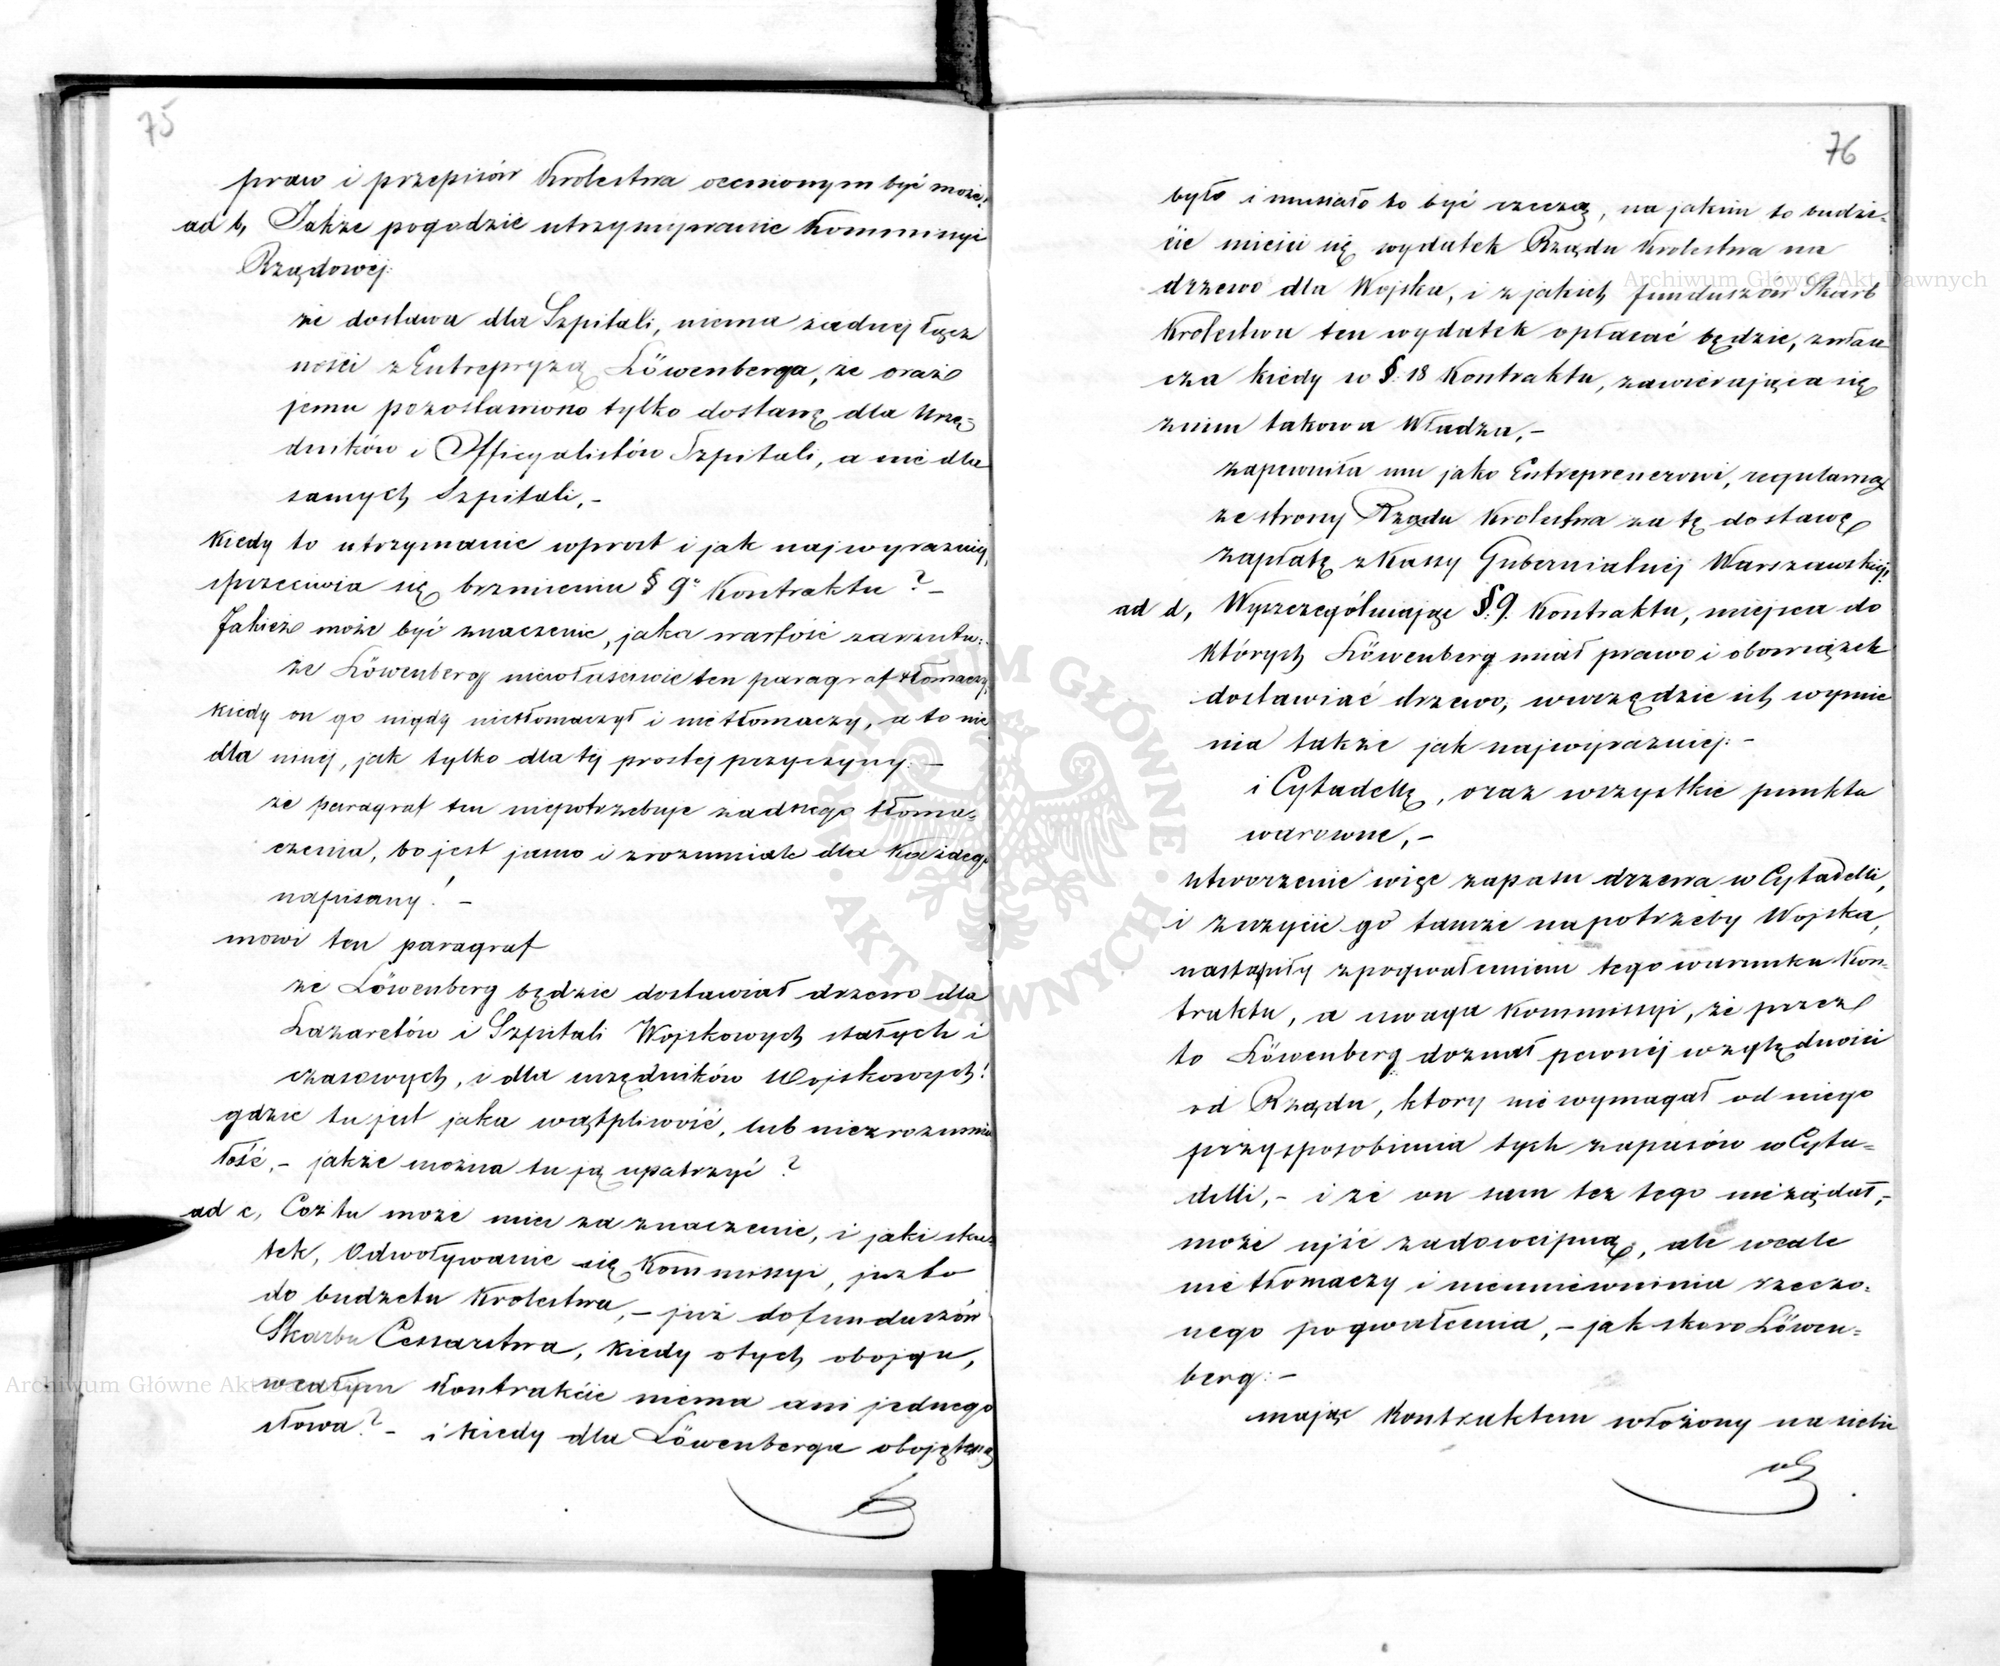 75
praw i przepisów Krolestwa ocenionym być może!
ad b, Jakże pogodzić utrzymywanie Kommissyi
Rządowej:
że dostawa dla Szpitali, niema żadnej łącz
ności z Entrepryzą Löwenberga, że oraz
jemu pozostawiono tylko dostawę dla Urzę=
dników i Officyalistów Szpitali, a nie dla
samych Szpitali,–
Kiedy to utrzymanie wprost i jak najwyrazniej
sprzeciwia się brzmieniu § 9º Kontraktu? –
Jakież może być znaczenie, jaka wartość zarzutu:
że Löwenberg niewłasciwie ten paragraf tłomaczy,
kiedy on go nigdy nietłomaczył i nietłomaczy, a to nie
dla innej, jak tylko dla tej prostej przyczyny: –
że paragraf ten niepotrzebuje żadnego tłoma=
czenia, bo jest jasno i zrozumiale dla Każdego
napisany! –
mowi ten paragraf
że Löwenberg będzie dostawiał drzewo dla
Lazaretów i Szpitali Wojskowych stałych i
czasowych, i dla urzędników Wojskowych!
gdzie tu jest jaka wątpliwość, lub niezrozumia
łość,– jakże można tu ją upatrzyć?
ad c, Coż tu może miec za znaczenie, i jaki sku=
tek, Odwoływanie się Kommissyi, juz to
do budżetu Krolestwa,– już do funduszów
Skarbu Cessarstwa, Kiedy o tych obojgu,
w całym Kontrakcie niema ani jednego
słowa? – i kiedy dla Löwenberga obojętną
76
było i musiało to być rzeczą, na jakim to budże=
cie mieści się wydatek Rządu Krolestwa na
drzewo dla Wojska, i z jakich funduszów Skarb
Krolestwa ten wydatek opłacać będzie, zwłasz
cza kiedy w §: 18 Kontraktu, zawierająca się
z nim takowa Władza,–
zapewniła mu jako Entreprenerowi, regularną
ze strony Rządu Krolestwa za tę dostawę
zapłatę z Kassy Gubernialnej Warszawskiej!
ad d, Wyszczególniając §. 9. Kontraktu, miejsca do
których Löwenberg miał prawo i obowiązek
dostawiać drzewo, w rzędzie ich wymie
nia także jak najwyrazniej: –
i Cytadellę, oraz wszystkie punkta
warowne,–
utworzenie więc zapasu drzewa w Cytadelli,
i zużycie go tamże na potrzeby Wojska,
nastąpiły z pogwałceniem tego warunku Kon=
traktu, a uwaga Kommissyi, że przez
to Löwenberg doznał pewnéj względności
od Rządu, ktory nie wymagał od niego
przysposobienia tych zapasów w Cyta=
delli,– i że on sam też tego nieżądał,–
może ujść za dowcipną, ale wcale
nie tłomaczy i nieuniewinnia rzeczo=
nego pogwałcenia,– jak skoro Löwen=
berg: –
mając Kontraktem włożony na siebie
Archiwum Główne Akt Dawnych
ARCHIWUM GŁÓWNE AKT DAWNYCH
Archiwum Główne Akt